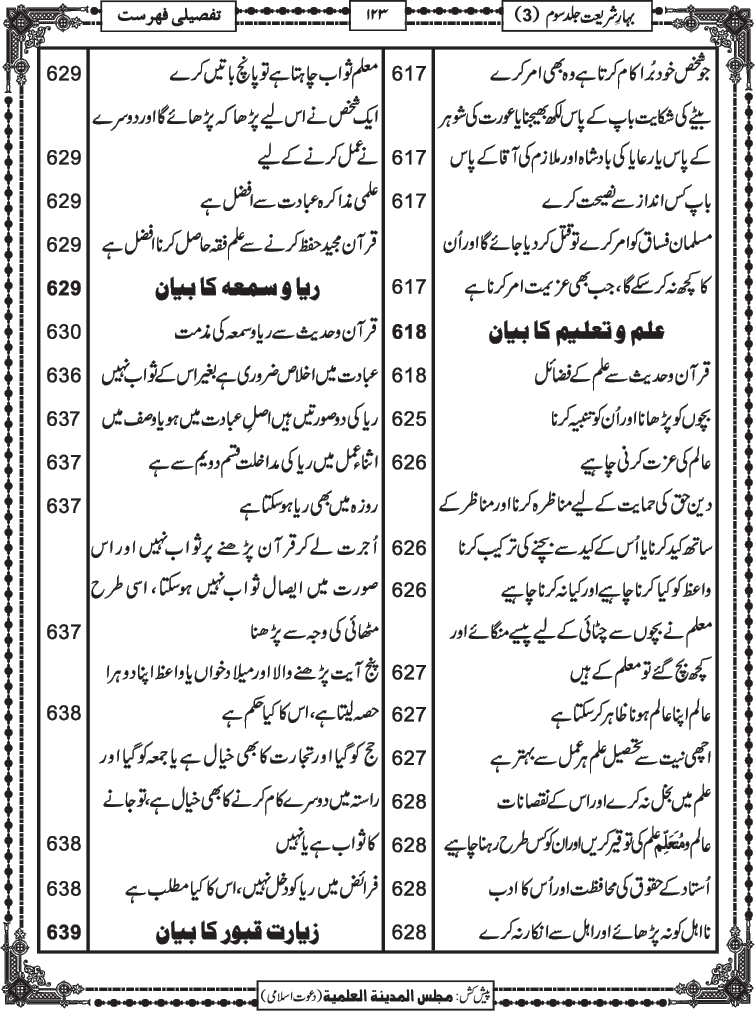 بہارِ شریعت جلد سوم (3)
۱۲۳
تفصیلی فہرست
جو شخص خود بُرا کام کرتا ہے وہ بھی امر کرے 617
بیٹے کی شکایت باپ کے پاس لکھ بھیجنا یا عورت کی شوہر
کے پاس یا رعایا کی بادشاہ اور ملازم کی آقا کے پاس 617
باپ کس انداز سے نصیحت کرے 617
مسلمان فساق کو امر کرے تو قتل کر دیا جائے گا اور اُن
کا کچھ نہ کر سکے گا، جب بھی عزیمت امر کرنا ہے 617
علم و تعلیم کا بیان 618
قرآن و حدیث سے علم کے فضائل 618
بچوں کو پڑھانا اور اُن کو تنبیہ کرنا 625
عالم کی عزت کرنی چاہیے 626
دین حق کی حمایت کے لیے مناظرہ کرنا اور مناظر کے
ساتھ کید کرنا یا اُس کے کید سے بچنے کی ترکیب کرنا 626
واعظ کو کیا کرنا چاہیے اور کیا نہ کرنا چاہیے 626
معلم نے بچوں سے چٹائی کے لیے پیسے منگائے اور
کچھ بچ گئے تو معلم کے ہیں 627
عالم اپنا عالم ہونا ظاہر کر سکتا ہے 627
اچھی نیت سے تحصیل علم ہر عمل سے بہتر ہے 627
علم میں بخل نہ کرے اور اس کے نقصانات 628
عالم و مُتَعَلِّم علم کی توقیر کریں اور ان کو کس طرح رہنا چاہیے 628
اُستاد کے حقوق کی محافظت اور اُس کا ادب 628
نا اہل کو نہ پڑھائے اور اہل سے انکار نہ کرے 628
معلم ثواب چاہتا ہے تو پانچ باتیں کرے 629
ایک شخص نے اس لیے پڑھا کہ پڑھائے گا اور دوسرے
نے عمل کرنے کے لیے 629
علمی مذاکرہ عبادت سے افضل ہے 629
قرآن مجید حفظ کرنے سے علم فقہ حاصل کرنا افضل ہے 629
ریا و سمعہ کا بیان 629
قرآن و حدیث سے ریا و سمعہ کی مذمت 630
عبادت میں اخلاص ضروری ہے بغیر اس کے ثواب نہیں 636
ریا کی دو صورتیں ہیں اصلِ عبادت میں ہو یا وصف میں 637
اثناءِ عمل میں ریا کی مداخلت قسم دویم سے ہے 637
روزہ میں بھی ریا ہو سکتا ہے 637
اُجرت لے کر قرآن پڑھنے پر ثواب نہیں اور اس
صورت میں ایصال ثواب نہیں ہو سکتا، اسی طرح
مٹھائی کی وجہ سے پڑھنا 637
پنج آیت پڑھنے والا اور میلاد خواں یا واعظ اپنا دوہرا
حصہ لیتا ہے، اس کا کیا حکم ہے 638
حج کو گیا اور تجارت کا بھی خیال ہے یا جمعہ کو گیا اور
راستہ میں دوسرے کام کرنے کا بھی خیال ہے، تو جانے
کا ثواب ہے یا نہیں 638
فرائض میں ریا کو دخل نہیں، اس کا کیا مطلب ہے 638
زیارت قبور کا بیان 639
پیش کش: مجلس المدینۃ العلمیۃ (دعوتِ اسلامی)